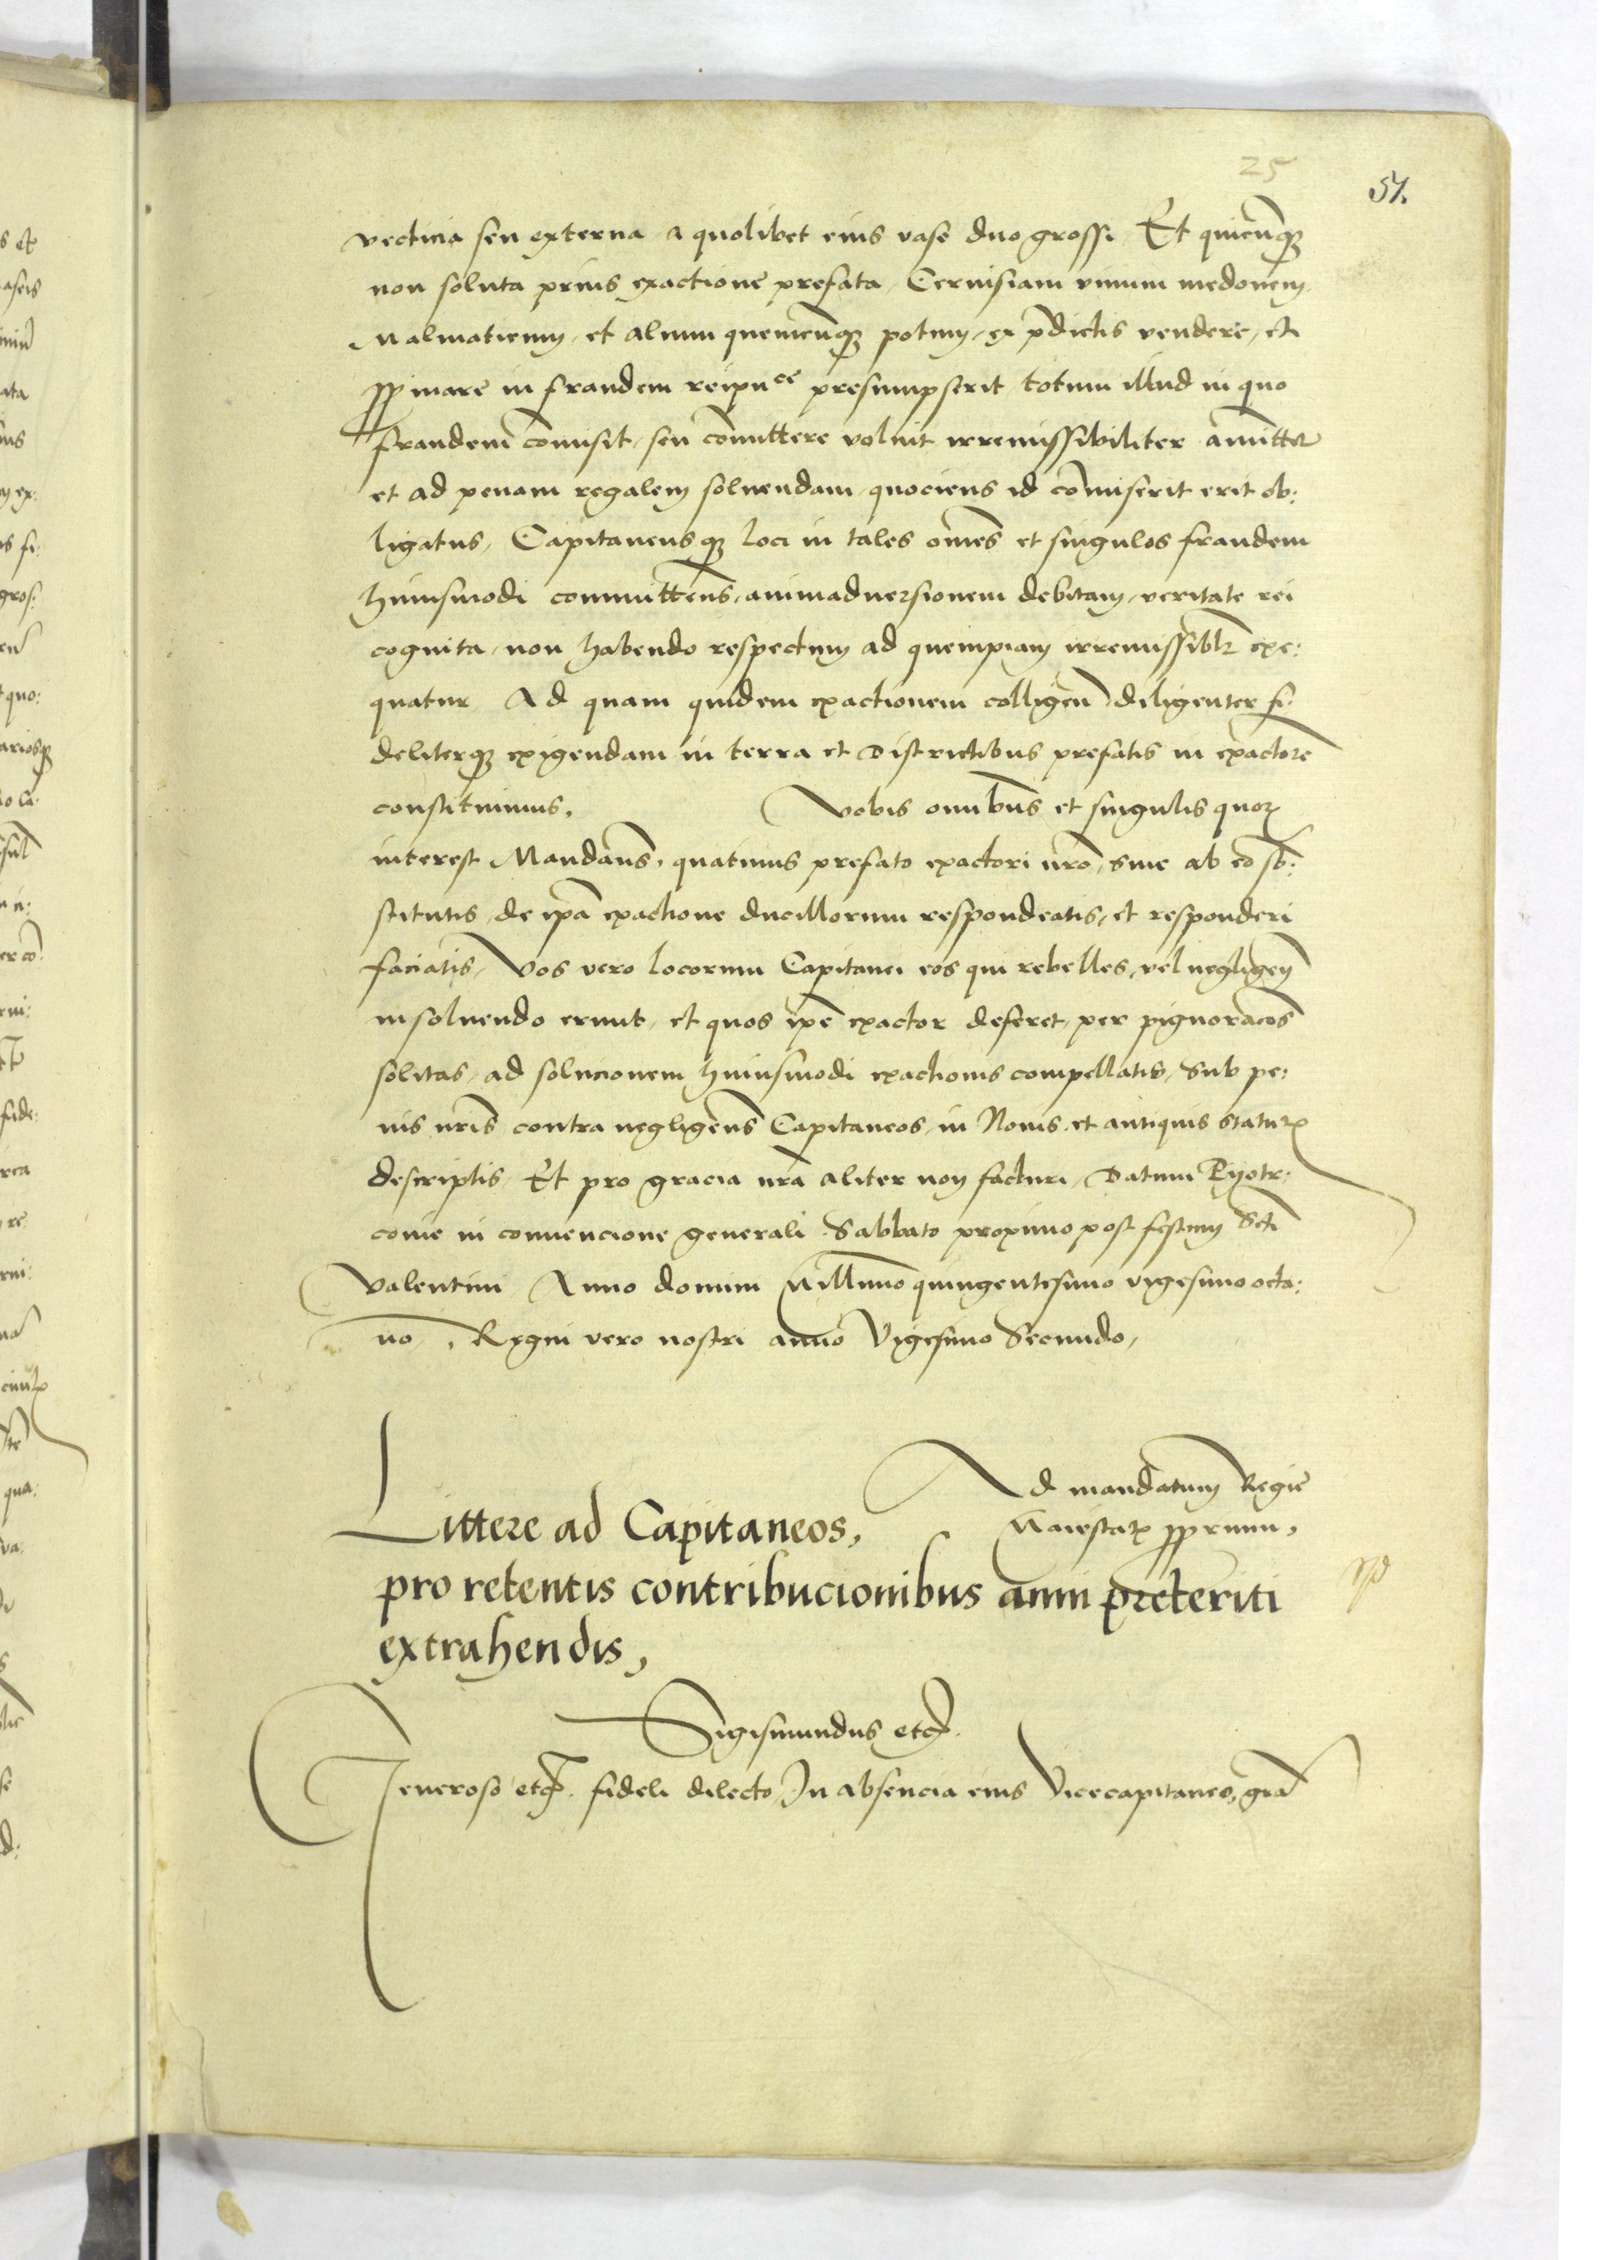 25
57.
vecticia seu externa a quolibet eius vase duo grossi Et quicu̅q3
non soluta prius exactione prefata, Ceruisiam vinum medonem,
Malmaticum, et alium quemcu̅q3 potum, ex p̅dictis vendere, et
ppinare in fraudem reipuce presumpserit totum illud in quo
fraudem co̅misit, seu co̅mittere voluit irremissibiliter amittet
et ad penam regalem soluendam quociens id co̅miserit erit ob:
ligatus, Capitaneusq3 loci in tales o̅mes et singulos fraudem
huiusmodi committen̅s, animaduersionem debitam, veritate rei
cognita, non habendo respectum ad quempiam irremissiblr exe:
quatur Ad quam quidem exactionem colligen̅ diligenter fi:
deliterq3 exigendam in terra et Districtibus prefatis in exactore̅
constituimus, Vobis omnibus et singulis quor
interest Mandan̅s, quatinus prefato exactori nr̅o, siue ab eo sb̅:
stitutis, de ip̅a exactione ducillorum respondeatis, et responderi
faciatis, Vos vero locorum Capitanei eos qui rebelles, vel negligen̅
in soluendo erunt, et quos ip̅e exactor deferet, per pignorac̅o̅es
solitas, ad solucionem huiusmodi exactionis compellatis, Sub pe:
nis nr̅is contra negligen̅s Capitaneos, in Nouis et antiquis statut͛
descriptis, Et pro gracia nr̅a aliter non facturi, Datum Pyotr:
couie in conuencione generali Sabbato proximo post festum Sc̅ti
Valentini Anno domini Millimo quingentesimo vigesimo octa:
uo, Regni vero nostri anno Vigesimo Secundo,
Ad mandatum Regie
Maiestat͛ pprium,
Littere ad Capitaneos,
pro retentis contribucionibus anni preteriti
extrahendis,
Sigismundus etc̅.
Generoso etc̅. fideli dilecto, In absencia eius Vicecapitaneo, gra̅